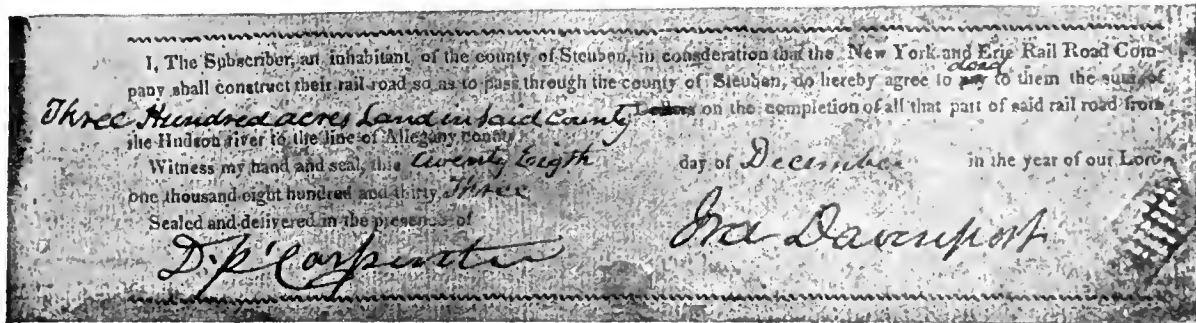 I, The Subscriber, an inhabitant of the county of Steuben, in consderation that the New York and Erie Rail Road Com-
donate
pany shall construct their rail-road so as to pass through the county of Steuben, do hereby agree to pay to them the sum of
Three Hundred acres Land in said County Dollars on the completion of all that part of said rail road from
the Hudson river to the line of Allegany county.
Witness my hand and seal, this twenty Eigth day of December in the year of our Lord
one thousand eight hundred and thirty Three
Sealed and delivered in the presence of
D. P. Carpenter
Ira Davenport